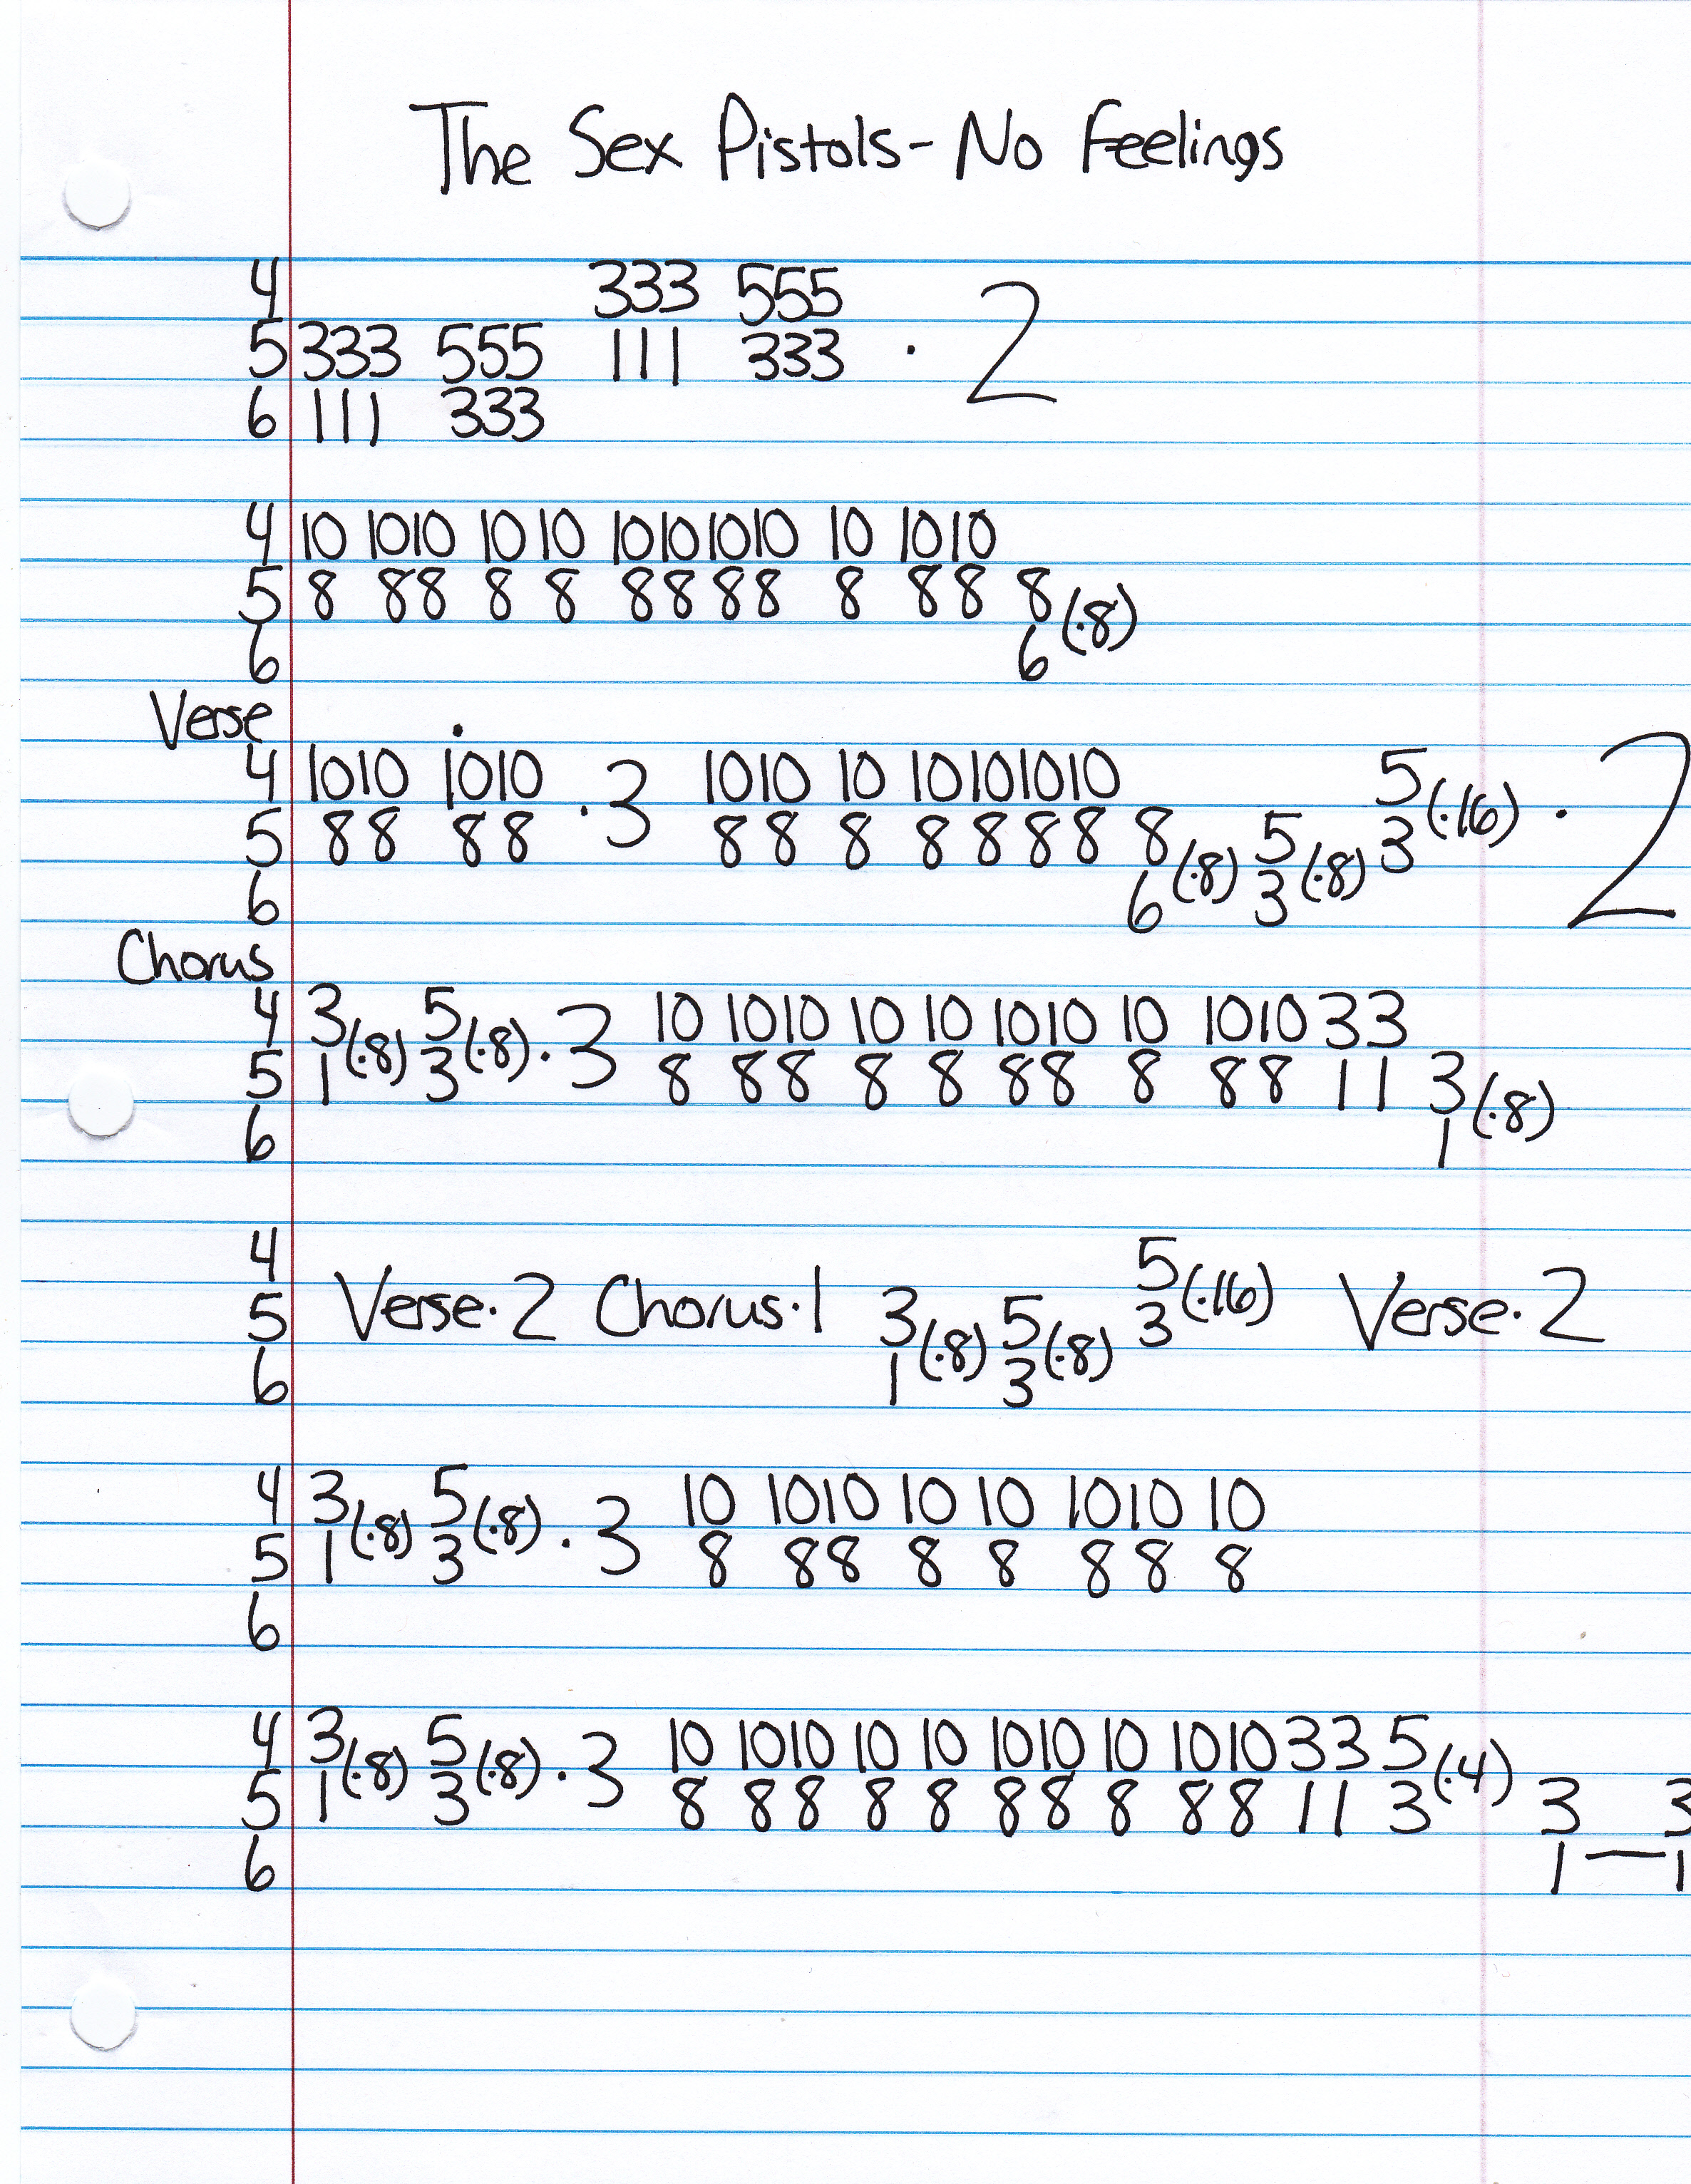 The Sex Pistols - No Feelings
4 333 555
5 333 555 111 333 · 2
6 111 333
4 10 1010 10 10 10101010 10 1010
5 8 88 8 8 8888 8 88 8 (·8)
6 6
Verse
4 1010 1010 · 3 1010 10 10101010 5 (·16) · 2
5 88 88 88 8 8888 8 (·8) 5 (·8) 3
6 6 3
Chorus
4 3 (·8) 5 (·8) · 3 10 1010 10 10 1010 10 1010 33
5 1 3 8 88 8 8 88 8 88 11 3 (·8)
6 1
4 5 (·16)
5 Verse·2 Chorus·1 3 (·8) 5 (·8) 3 Verse·2
6 1 3
4 3 (·8) 5 (·8) · 3 10 1010 10 10 1010 10
5 1 3 8 88 8 8 88 8
6
4 3 (·8) 5 (·8) · 3 10 1010 10 10 1010 10 1010 33 5 (·4)
5 1 3 8 88 8 8 88 8 88 11 3 3 3
6 1 — 1